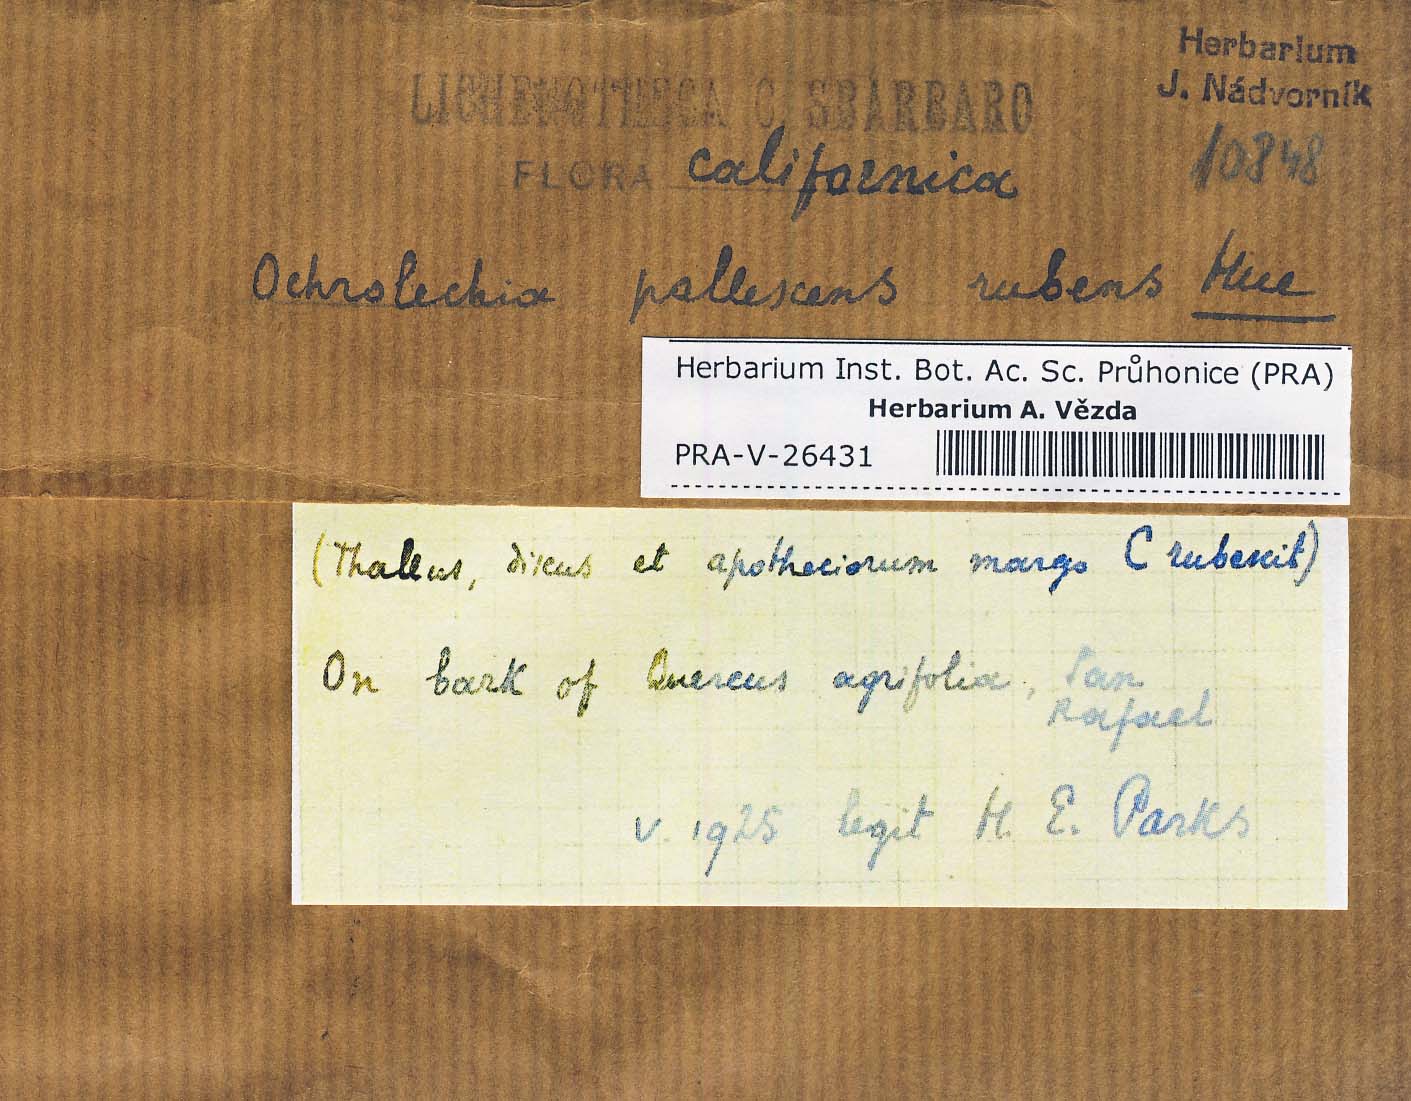 Herbarium
J. Nádvorník
10848
LICHENOTHECA C. SBARBARO
FLORA californica
Ochrolechia pallescens rubens Hue
Herbarium Inst. Bot. Ac. Sc. Průhonice (PRA)
Herbarium A. Vězda
PRA-V-26431
(Thallus, discus et apotheciorum margo C rubescit)
On bark of Quercus agrifolia, San
Rafael
V. 1925 legit H. E. Parks